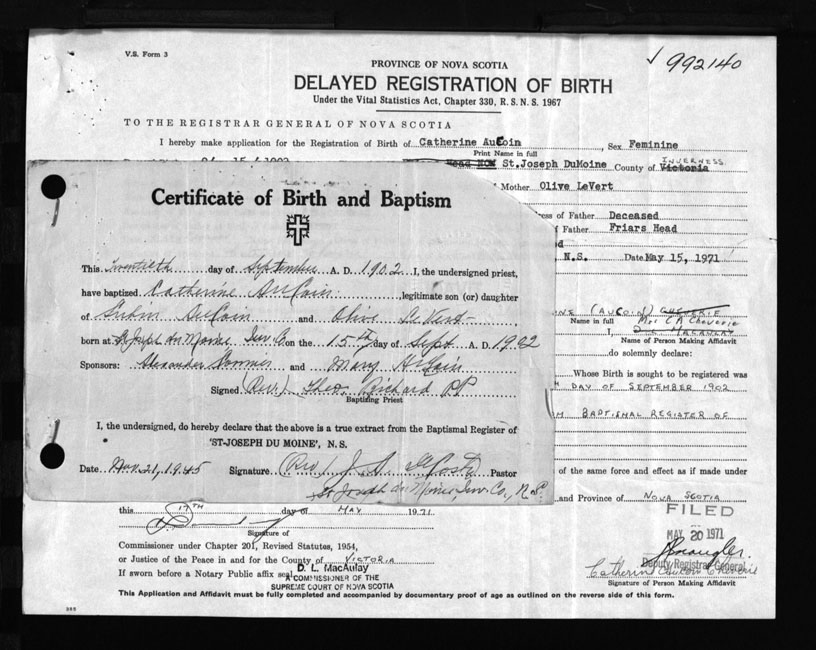 V.S. Form 3
✓ 992140
PROVINCE OF NOVA SCOTIA
DELAYED REGISTRATION OF BIRTH
Under the Vital Statistics Act, Chapter 330, R.S.N.S. 1967
TO THE REGISTRAR GENERAL OF NOVA SCOTIA
I hereby make application for the Registration of Birth of Catherine AuCoin, Sex Feminine
Print Name in full
St.Joseph DuMoine County of Victoria INVERNESS
Mother Olive LeVert
ress of Father Deceased
of Father Friars Head
N.S. Date May 15, 1971
(AUCOIN)
Name in full
Mrs CA Cheverie
I, D. L. MACAULAY
Name of Person Making Affidavit
do solemnly declare:
Whose Birth is sought to be registered was
DAY OF SEPTEMBER 1902
BAPTISMAL REGISTER OF
of the same force and effect as if made under
and Province of NOVA SCOTIA
FILED
MAY 20 1971
Deputy Registrar General
Catherine Aucoin Cheverie
Signature of Person Making Affidavit
Certificate of Birth and Baptism
This twentieth day of September A. D. 1902 I, the undersigned priest,
have baptized Catherine AuCoin legitimate son (or) daughter
of AuCoin and Olive LeVert
born at St Joseph du Moine Inv. Co on the 15th day of Sept A. D. 1902
Sponsors: Alexander and Mary AuCoin
Signed (Rev.) Theo. Richard PP
Baptizing Priest
I, the undersigned, do hereby declare that the above is a true extract from the Baptismal Register of
'ST-JOSEPH DU MOINE', N. S.
Date Nov. 21, 1945 Signature (Rev) J. Pastor
St Joseph du Moine, Inv. Co., N.S.
this 17TH day of MAY 1971
Signature of
Commissioner under Chapter 201, Revised Statutes, 1954,
or Justice of the Peace in and for the County of VICTORIA
If sworn before a Notary Public affix seal
D. L. MacAulay
A COMMISSIONER OF THE
SUPREME COURT OF NOVA SCOTIA
This Application and Affidavit must be fully completed and accompanied by documentary proof of age as outlined on the reverse side of this form.